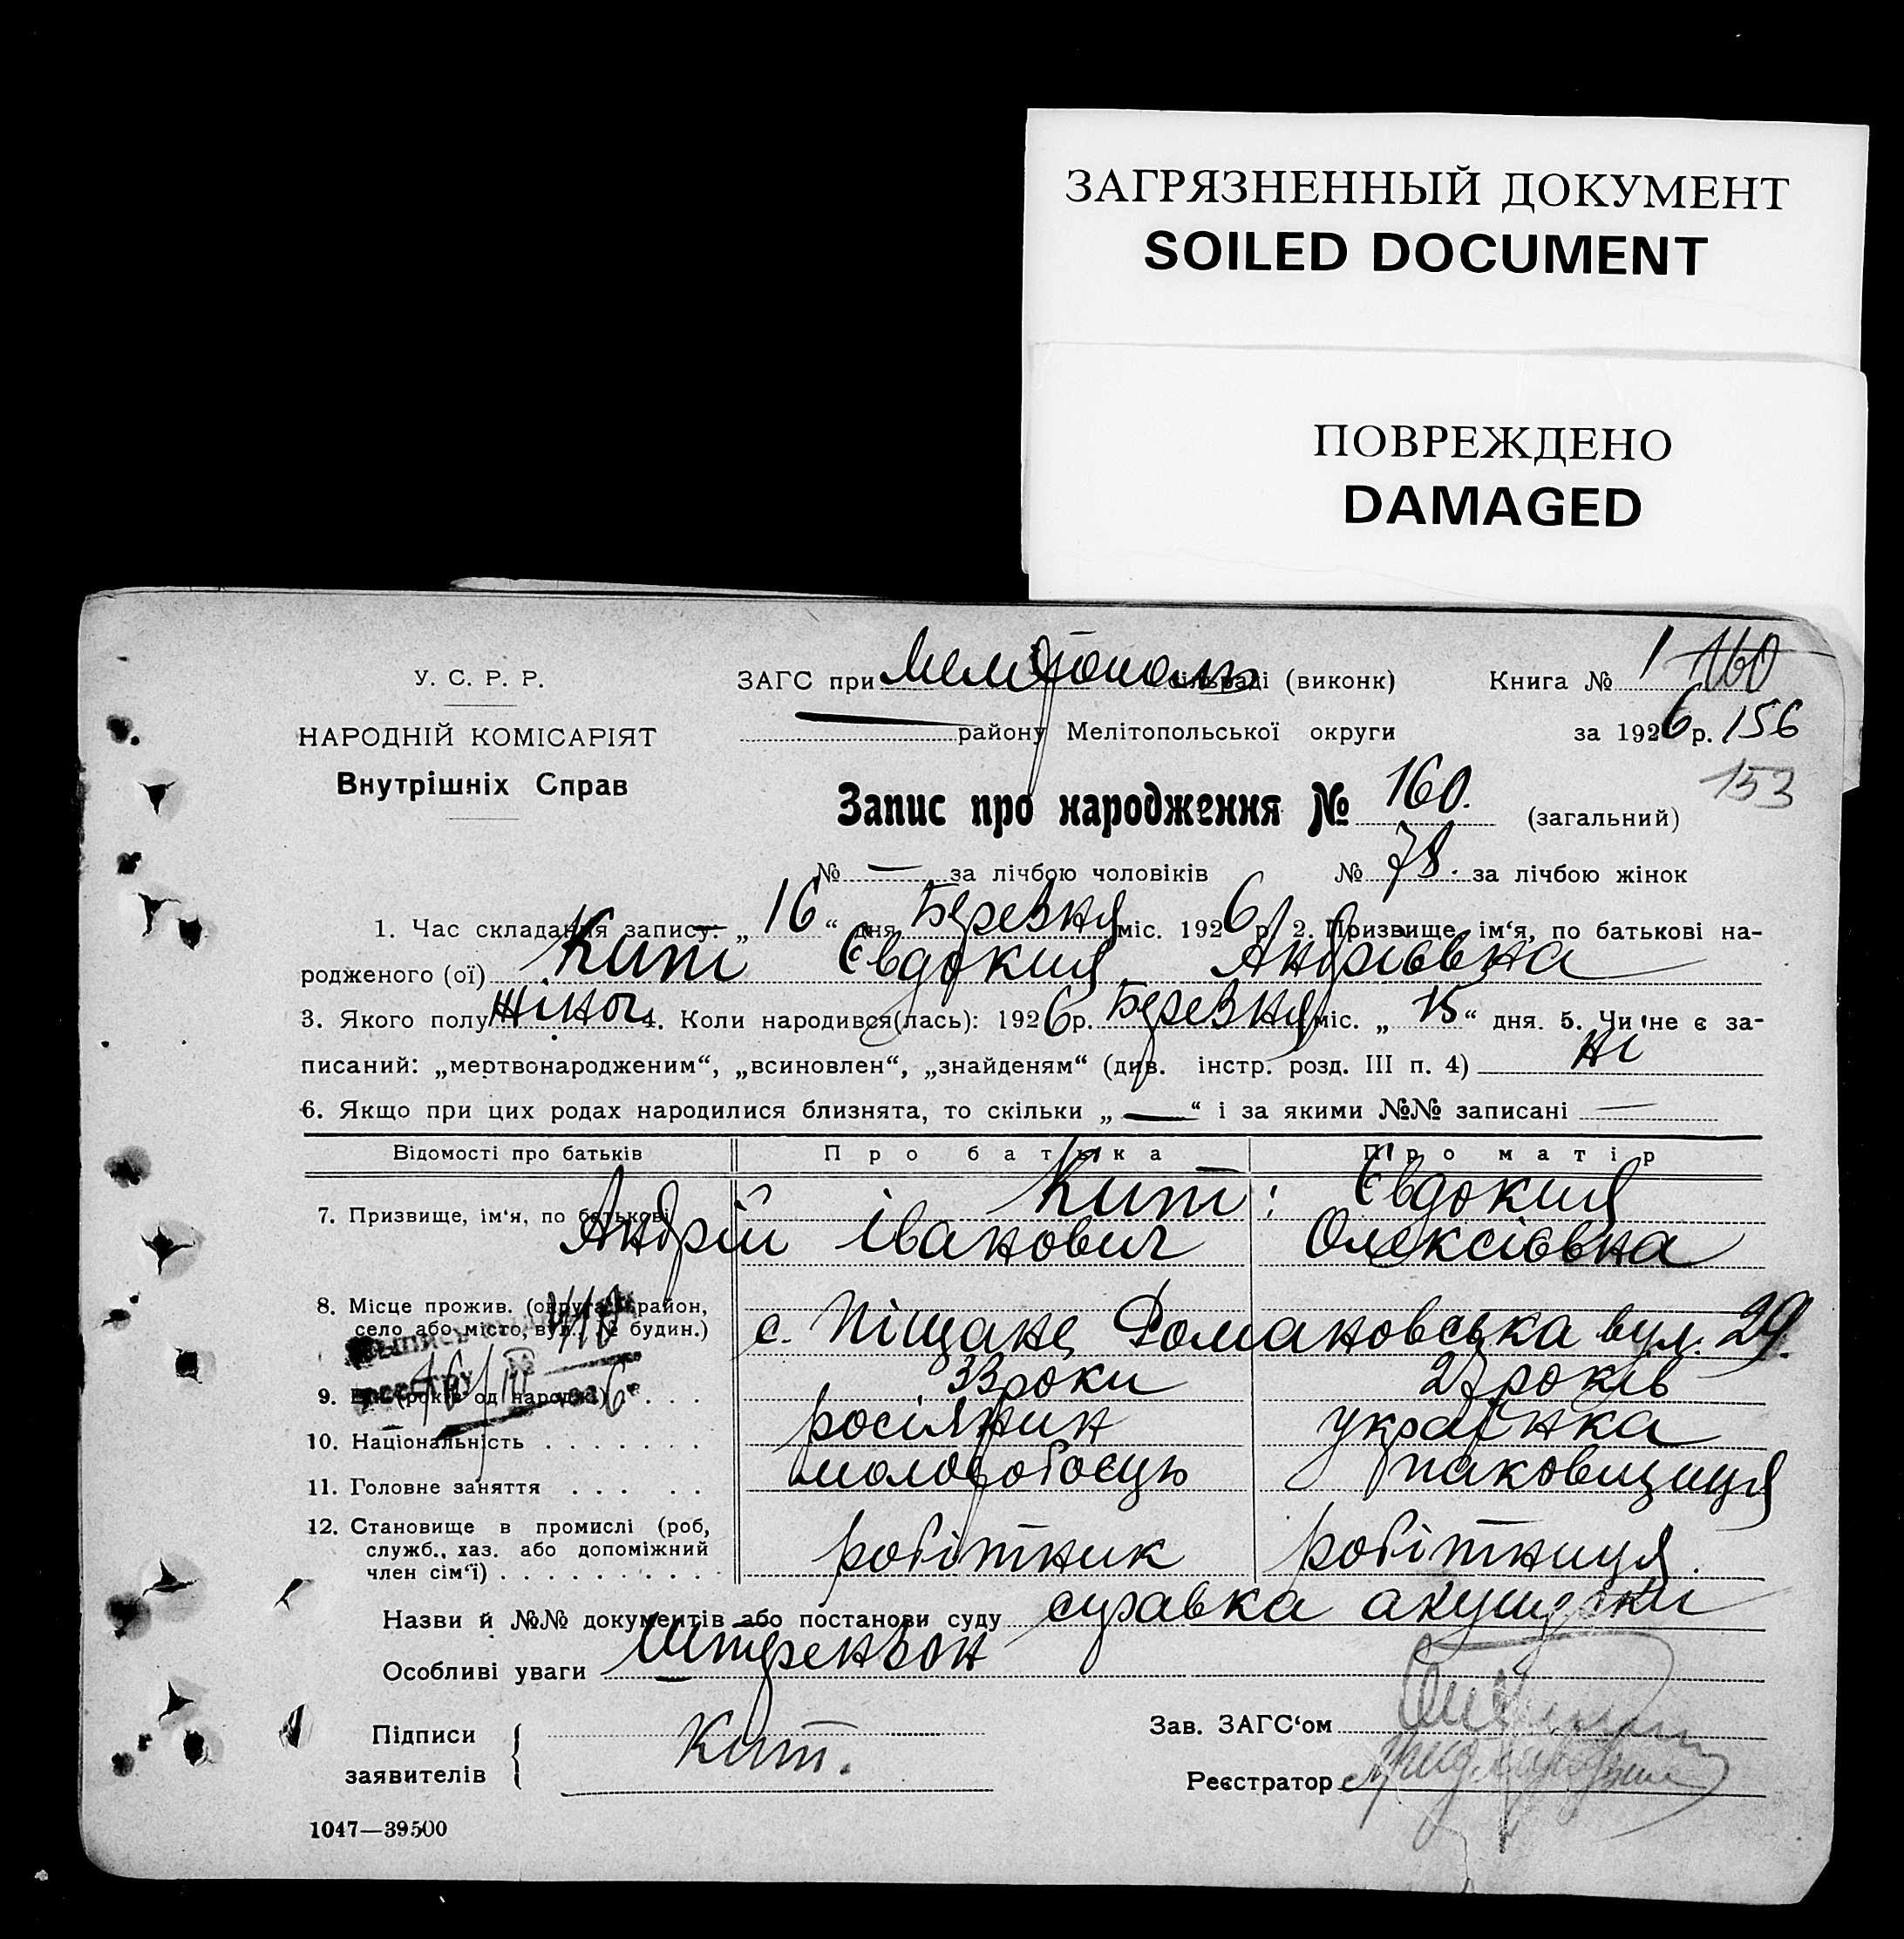 ЗАГРЯЗНЕННЫЙ ДОКУМЕНТ
SOILED DOCUMENT
ПОВРЕЖДЕНО
DAMAGED
У. С. Р. Р.
НАРОДНІЙ КОМІСАРІЯТ
Внутрішніх Справ
ЗАГС при Мелітополь сільраді (виконк) Книга № 1 160
району Мелітопольської округи за 1926 р. 156
153
Запис про народження № 160. (загальний)
№ — за лічбою чоловіків № 78. за лічбою жінок
1. Час складання запису: „16“ дня Березня міс. 1926 р. 2. Призвище, ім‘я, по батькові на-
родженого (ої) Кит Євдокия Андріївна
3. Якого полу жіноч. 4. Коли народився(лась): 1926 р. Березня міс. „15“ дня. 5. Чи не є за-
писаний: „мертвонародженим“, „всиновлен“, „знайденям“ (див. інстр. розд. III п. 4) ні
6. Якщо при цих родах народилися близнята, то скільки „—“ і за якими №№ записані —
Відомості про батьків Про батька Про матір
7. Призвище, ім‘я, по батькові Кит Євдокия
Андрій Іванович Олексіївна
8. Місце прожив. (округа, район,
село або місто, вул., № будин.) с. Піщане Романовська вул. 29.
9. Вік (років од народж.) . . . 33 роки 27 років
10. Національність . . . . . . . росіянин українка
11. Головне заняття . . . . . молотобоєць паковщиця
12. Становище в промислі (роб,
служб., хаз. або допоміжний
член сім‘ї) . . . . . . . . . . робітник робітниця
Назви й №№ документів або постанови суду справка акушерки
Особливі уваги Штрензон
Підписи
заявителів Кит.
Зав. ЗАГС‘ом
Реєстратор
1047—39500